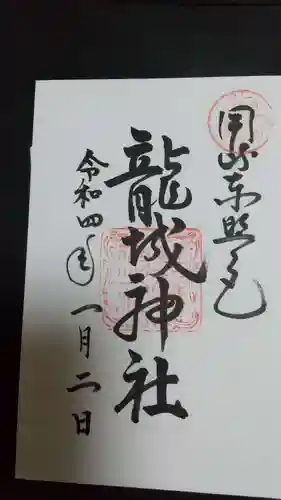 岡崎東照宮
龍城神社
令和四年 一月二日